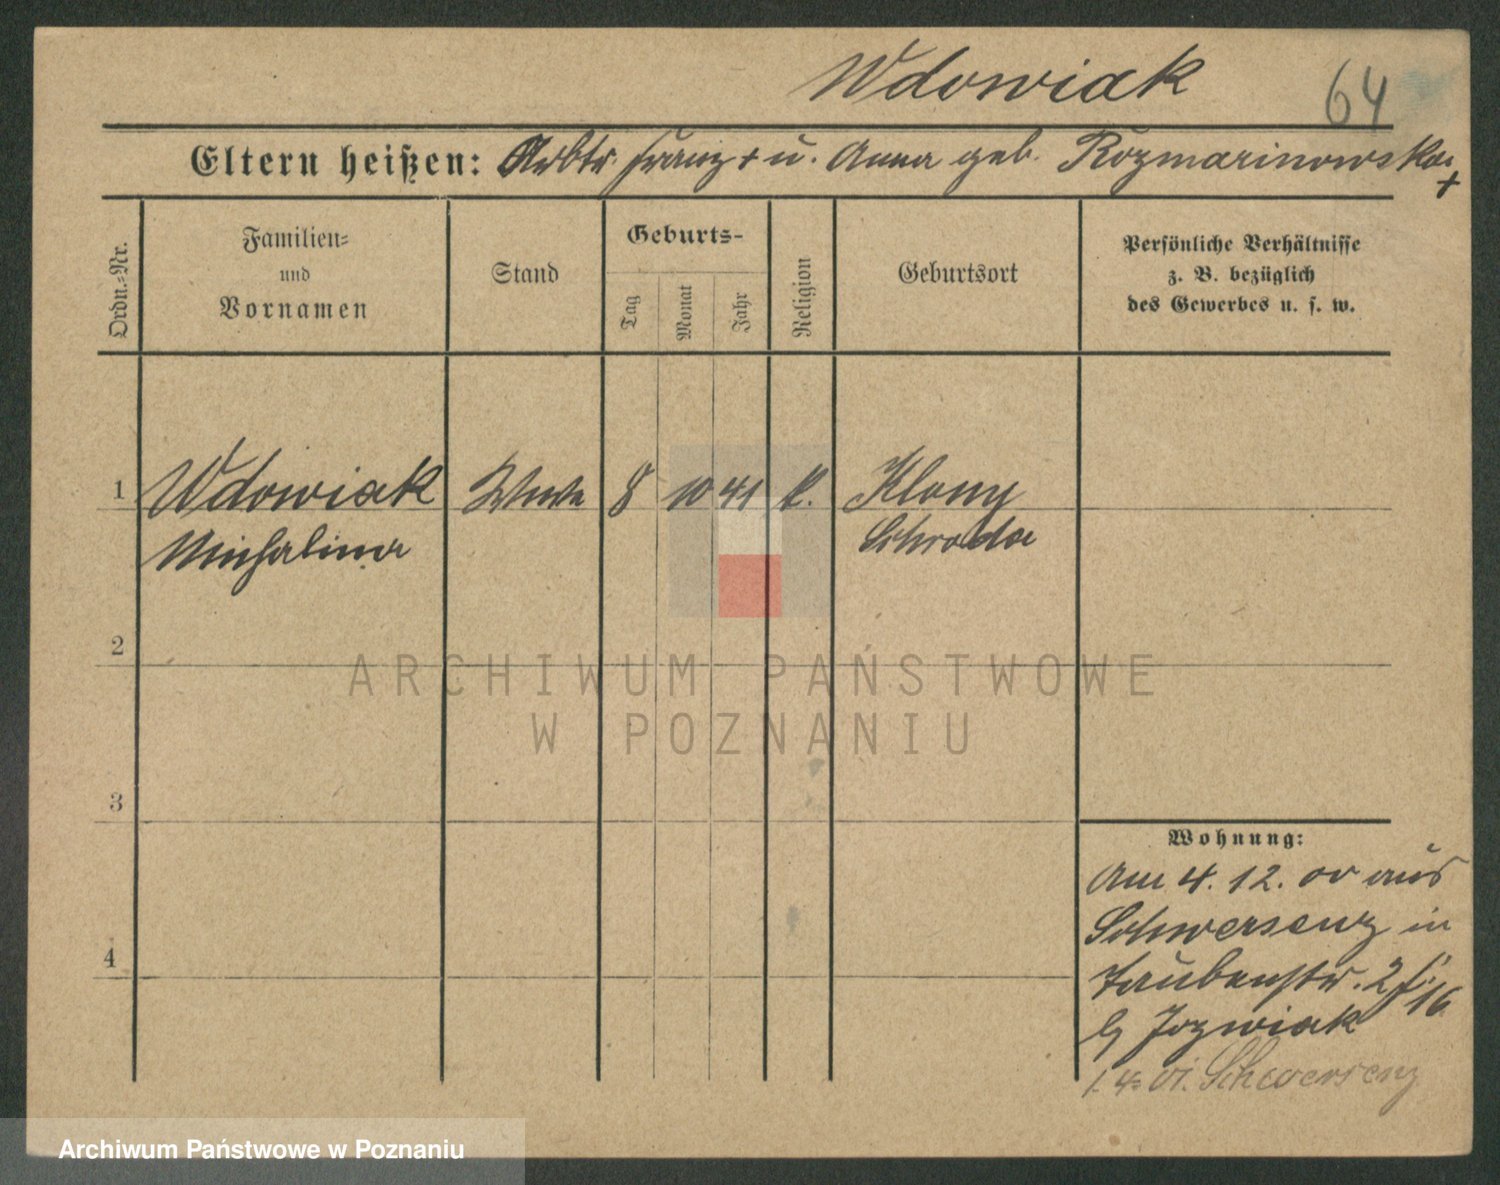 Wdowiak
64
Eltern heißen: Arbtr. Franz + u. Anna geb. Rozmarinowska +
Ordn.=Nr.
Familien=
und
Vornamen
Stand
Geburts-
Tag
Monat
Jahr
Religion
Geburtsort
Persönliche Verhältnisse
z. B. bezüglich
des Gewerbes u. s. w.
1 Wdowiak Wwe 8 10 41 k. Klony
Michalina Schroda
2
3
4
Wohnung:
Am 4. 12. 00 aus
Schwersenz in
Taubenstr. 2
16
b/ Jozwiak
1. 4. 01. Schwersenz
ARCHIWUM PAŃSTWOWE
W POZNANIU
Archiwum Państwowe w Poznaniu